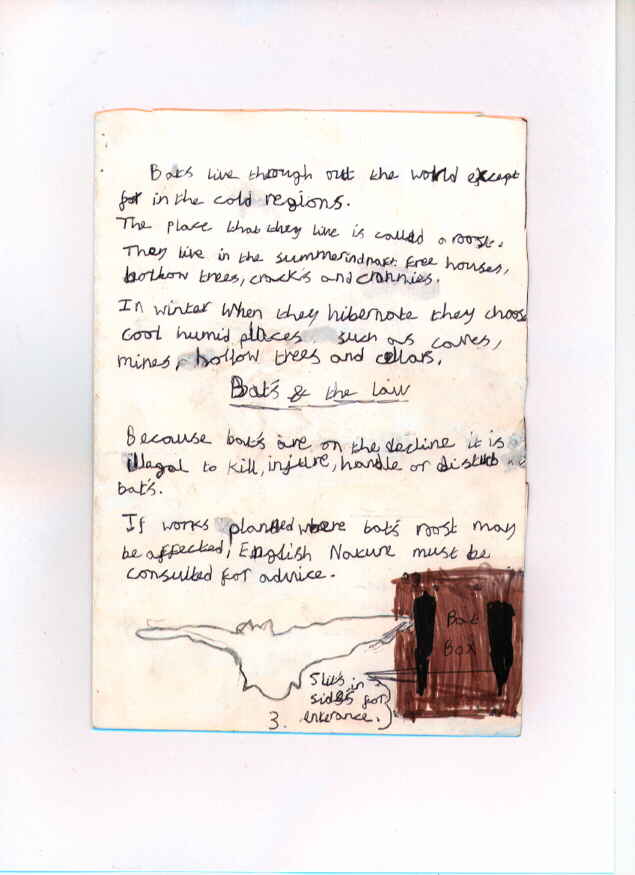 Bats live through out the world except
for in the cold regions.
The place that they live is called a roost.
They live in the summer in draft free houses,
hollow trees, cracks and crannies.
In winter when they hibernate they choose
cool humid places such as caves,
mines, hollow trees and cellars.
Bat's & the law
Because bat's are on the decline it is
illegal to kill, injure, handle or disturb
bat's.
If works planned where bat's roost may
be affected, English Nature must be
consulted for advice.
Bat
Box
Slits in
sides for
enterance.
3.